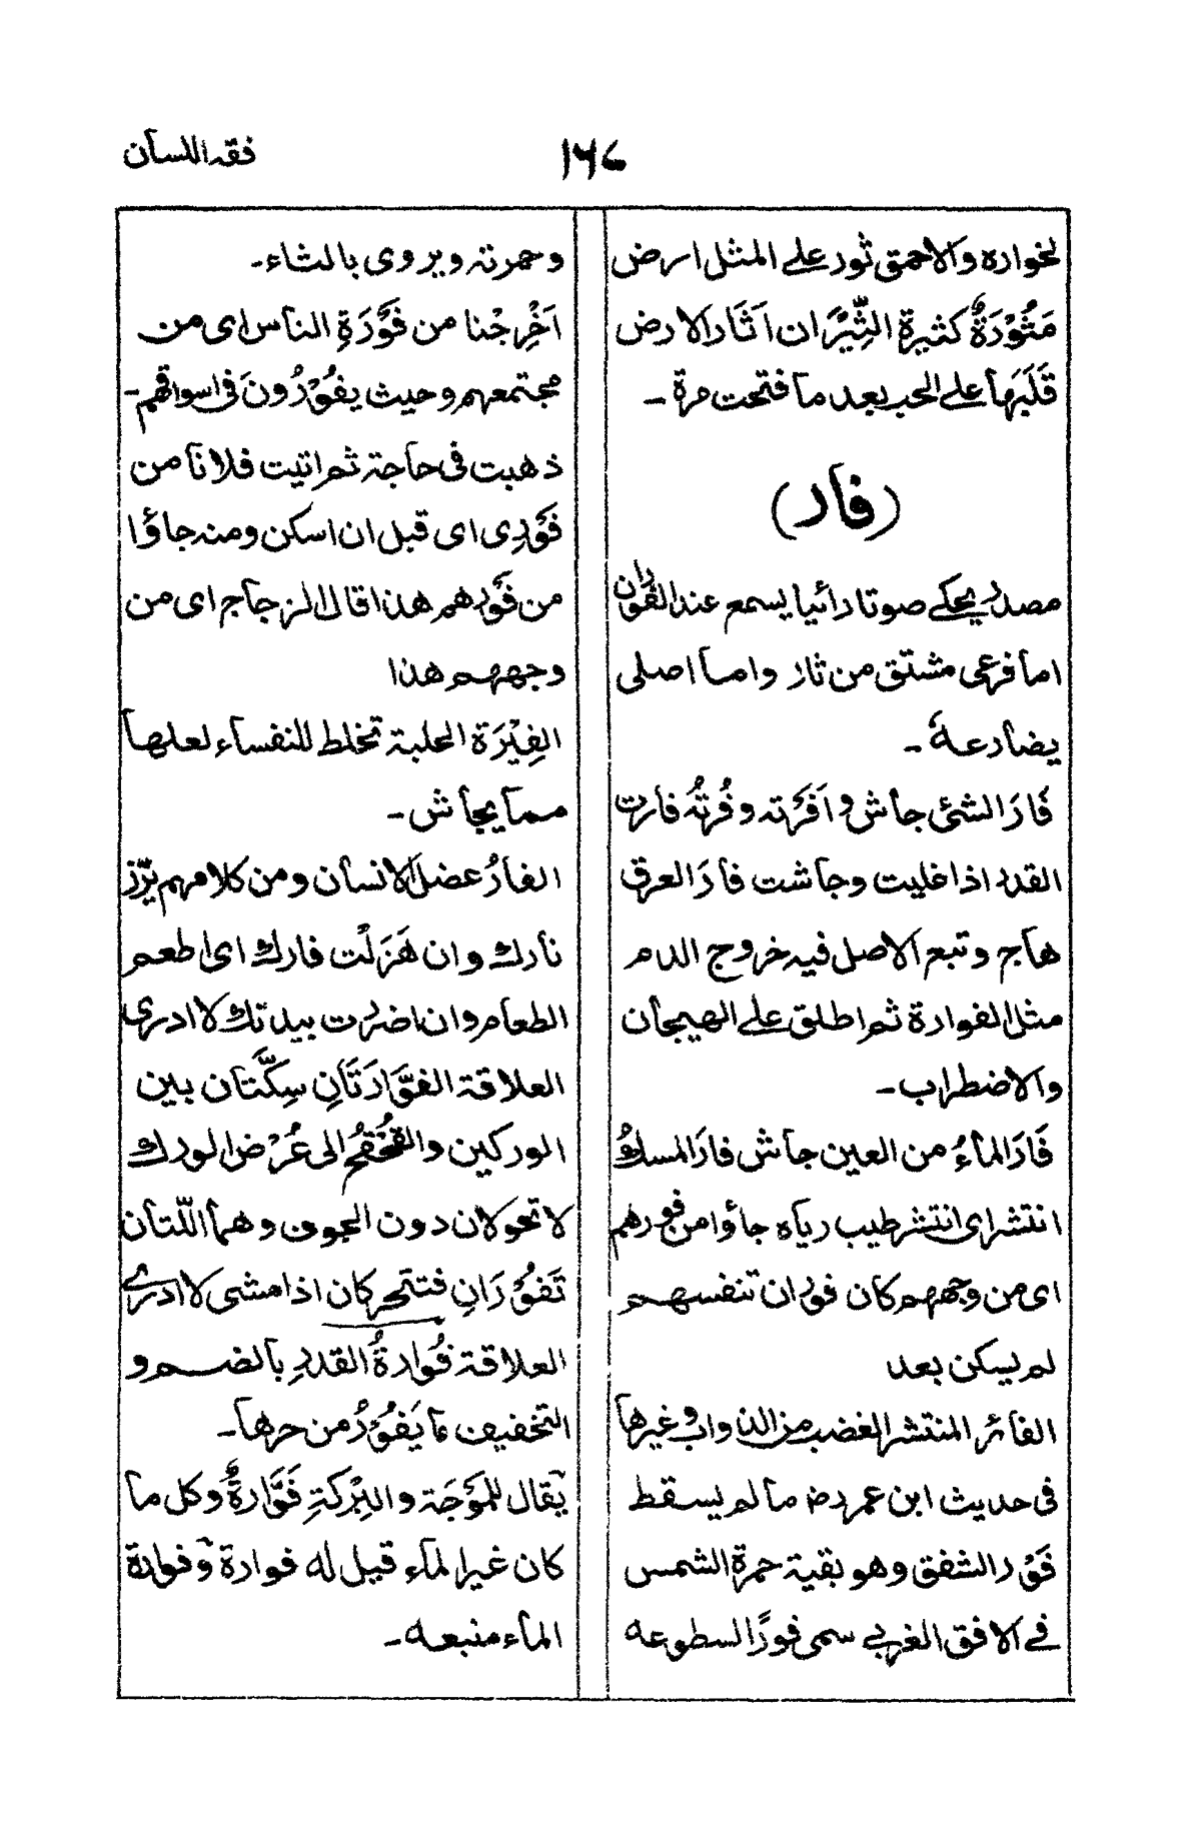 فقه اللسان
١٦٧
لخواره والاحمق ثور علے المثل ارض
مَثْوَرَةٌ كثيرة الثِّيْرَان اَثَار الارض
قَلَبَها علے الحب بعد ما فتحت مرة ـ
(فار)
مصدر يحكے صوتا دائيا يسمع عند الفوران
اما فرعى مشتق من ثار واما اصلى
يضارعهٗ ـ
فَارَ الشئ جاش و اَفَرْته و فُرْتُه فارت
القدر اذا غليت وجاشت فارَ العرق
هاج وتبع الاصل فيه خروج الدم
مثل الفوارة ثم اطلق علے الهيجان
والاضطراب ـ
فَارَ الماءُ من العين جاش فارَ المسكُ
انتشر اى انتشر طيب رياه جاؤا من فورهم
اى من وجههم كان فور ان تنفسهم
لم يسكن بعد
الفائر المنتشر الغضب من الدواب وغيرها
فى حديث ابن عمر رض ما لم يسقط
فَوْر الشفق وهو بقية حمرة الشمس
فے الافق الغربے سمى فورًا لسطوعه
وحمرته ويروى بالثاء ـ
اَخْرِجْنا من فَوْرَةِ الناس اى من
مجتمعهم وحيث يفُوْرُونَ فى اسواقهم ـ
ذهبت فى حاجة ثم اتيت فلانا من
فَوْرِى اى قبل ان اسكن ومنه جاؤا
من فَوْرِهم هذا قال الزجاج اى من
وجههم هذا
الفِيْرَة الحلبة تخلط للنفساء لعلها
مما يجاش ـ
الفارُ عضل الانسان ومن كلامهم برّز
نارك وان هَزَلْت فارك اى اطعم
الطعام وان اضررت ببدنك لا ادرى
العلاقة الفَوَّارَتَانِ سِكَّتان بين
الوركين والقُحْقُح الى عُرْض الورك
لا تحولان دون الجوف وهما اللّتان
تَفُوْرَانِ فتتحركان اذا مشى لا ادرے
العلاقة فُوَارةُ القدرِ بالضم و
التخفيف ما يَفُوْرُ من حرها ـ
يقال للمَوْجَة والبِرْكَةِ فَوَّارةٌ وكل ما
كان غير الماء قيل له فوارة و فوارة
الماء منبعه ـ